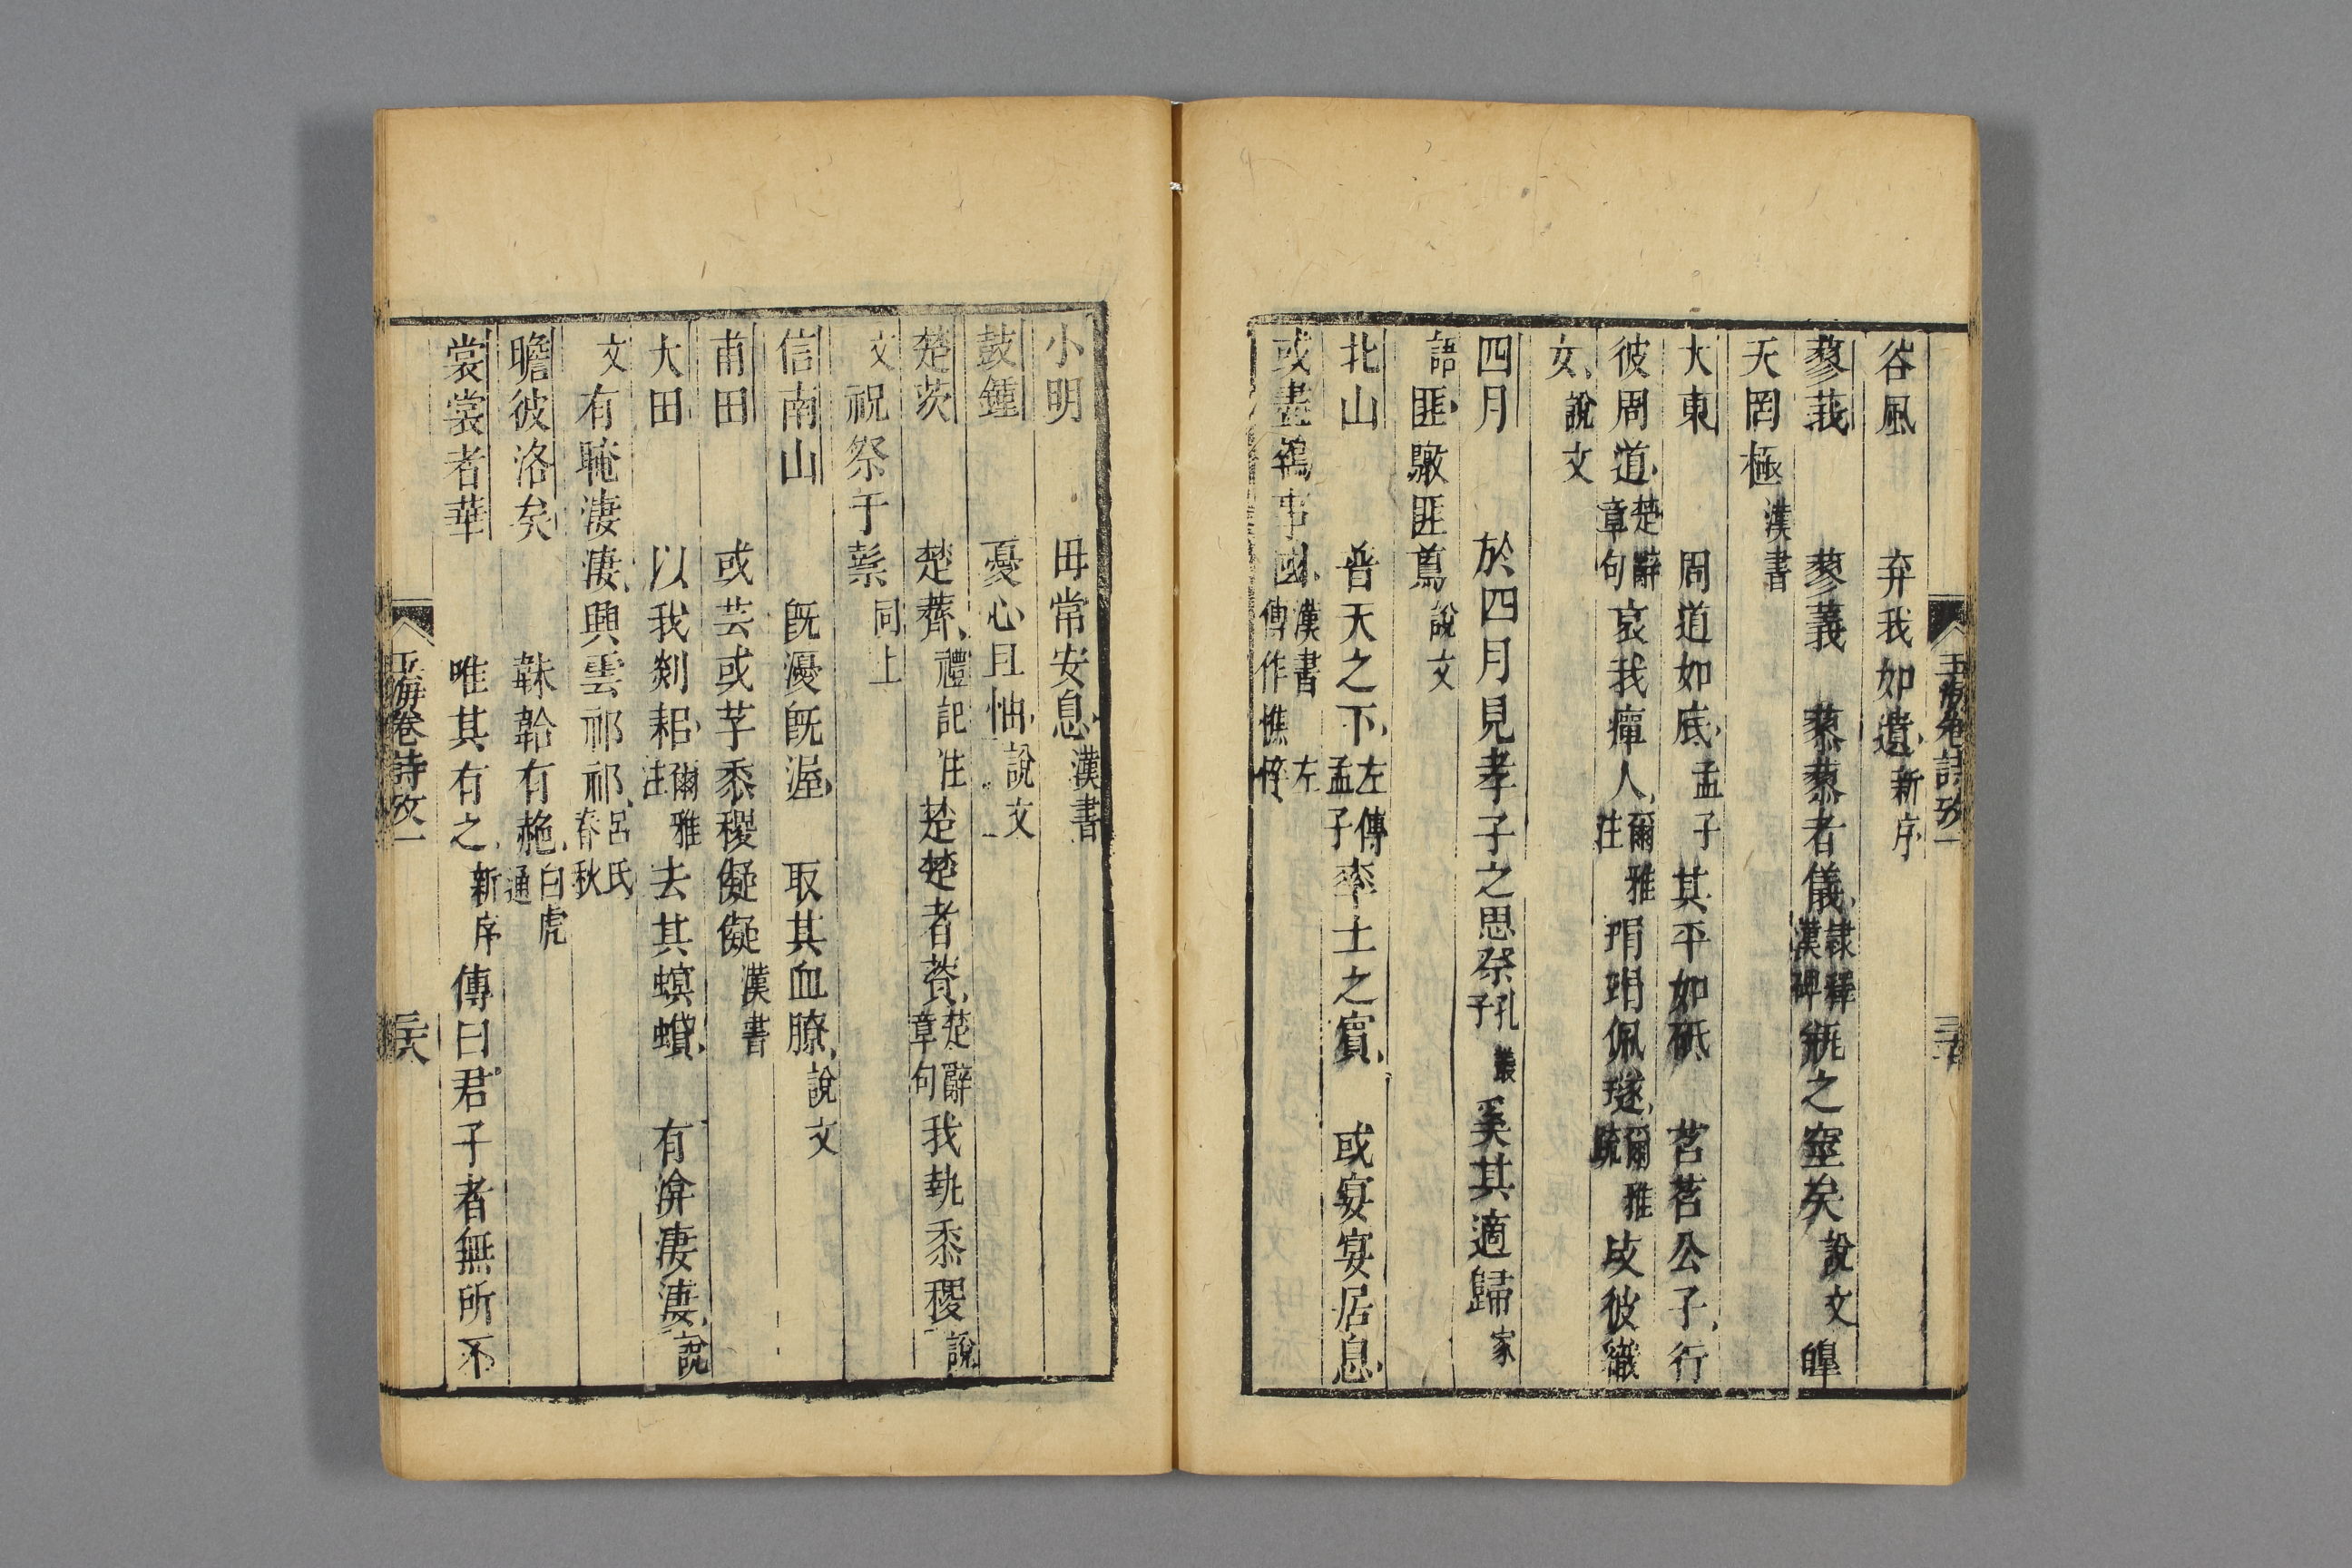 玉海卷詩攷一
谷風 弃我如遺新序
蓼莪 蓼蓼 蓼蓼者儀隸釋漢碑缾之窒矣說文 皥
天罔極漢書
大東 周道如底孟子其平如砥 苕苕公子行
彼周道楚辭章句哀我癉人爾雅注琄琄佩璲爾雅疏歧彼織
女說文
四月 於四月見孝子之思祭孔子叢奚其適歸家
語匪鷻匪蔦說文
北山 普天之下左傳孟子率土之賓 或宴宴居息
或盡顇事國漢書左傳作憔悴
小明 毋常安息漢書
鼓鍾 憂心且怞說文
楚茨 楚薺禮記注楚楚者薋楚辭章句我執黍稷說
文祝祭于𥛱同上
信南山 旣瀀旣渥 取其血膫說文
甫田 或芸或芓黍稷儗儗漢書
大田 以我剡耜爾雅注去其螟蟘 有渰淒淒說
文有晻淒淒興雲祁祁呂氏春秋
瞻彼洛矣 韎韐有赩白虎通
裳裳者華 唯其有之新序傳曰君子者無所不
玉海卷詩攷一 三六